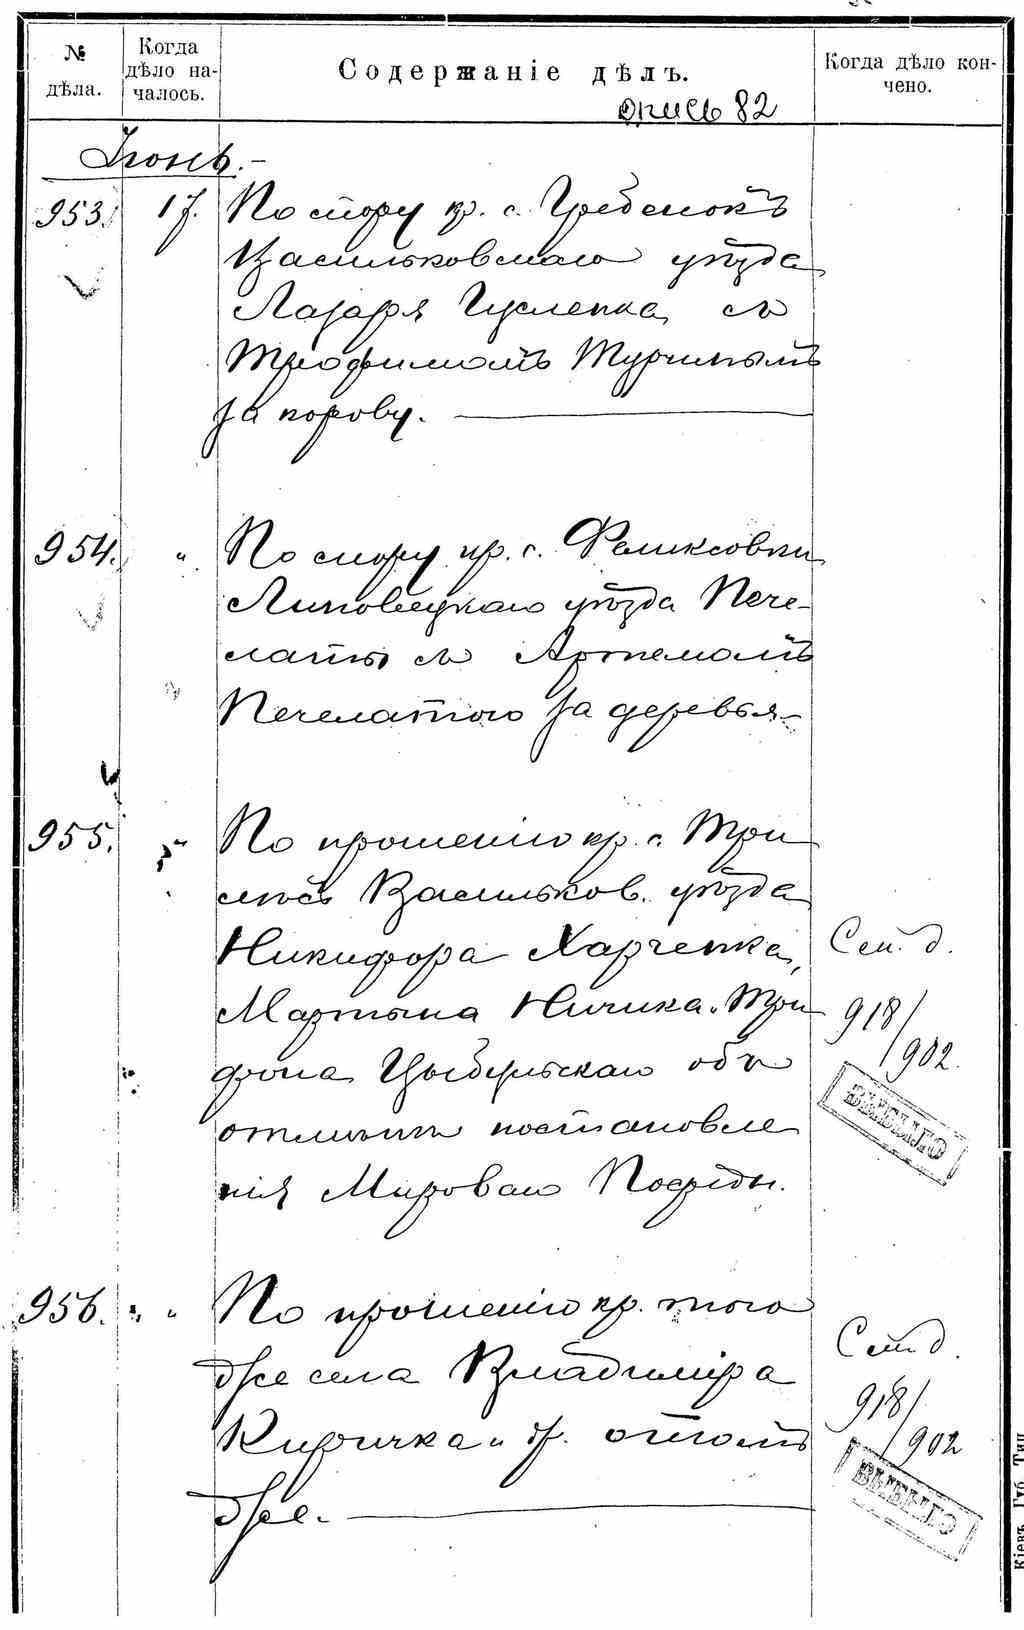 № дѣла.
Когда дѣло на-
чалось.
Содержаніе дѣлъ.
Когда дѣло кон-
чено.
опись 82
Іюнь.-
953. 17. По спору кр. с. Гребенокъ
Васильковскаго уѣзда
Лазаря Гусленка съ
Трофимомъ Турчинымъ
за корову.
954. " По спору кр. с. Феликсовки
Липовецкаго уѣзда Пече-
латы съ Артемомъ
Печелатого за деревья.-
955. " По прошенію кр. с. Три
лѣсъ Васильков. уѣзда
Никифора Харченка,
Мартына Ничика и Три
фона Цыбульскаго объ
отмѣнѣ постановле
нія Мироваго Посредн.
См. д.
918/
/902.
ВЫБЫЛО
956. " " По прошенію кр. того
же села Владиміра
Киричка и др. о томъ
же.-
См. д.
918/
/902
ВЫБЫЛО
Кіевъ. Губ. Тип.